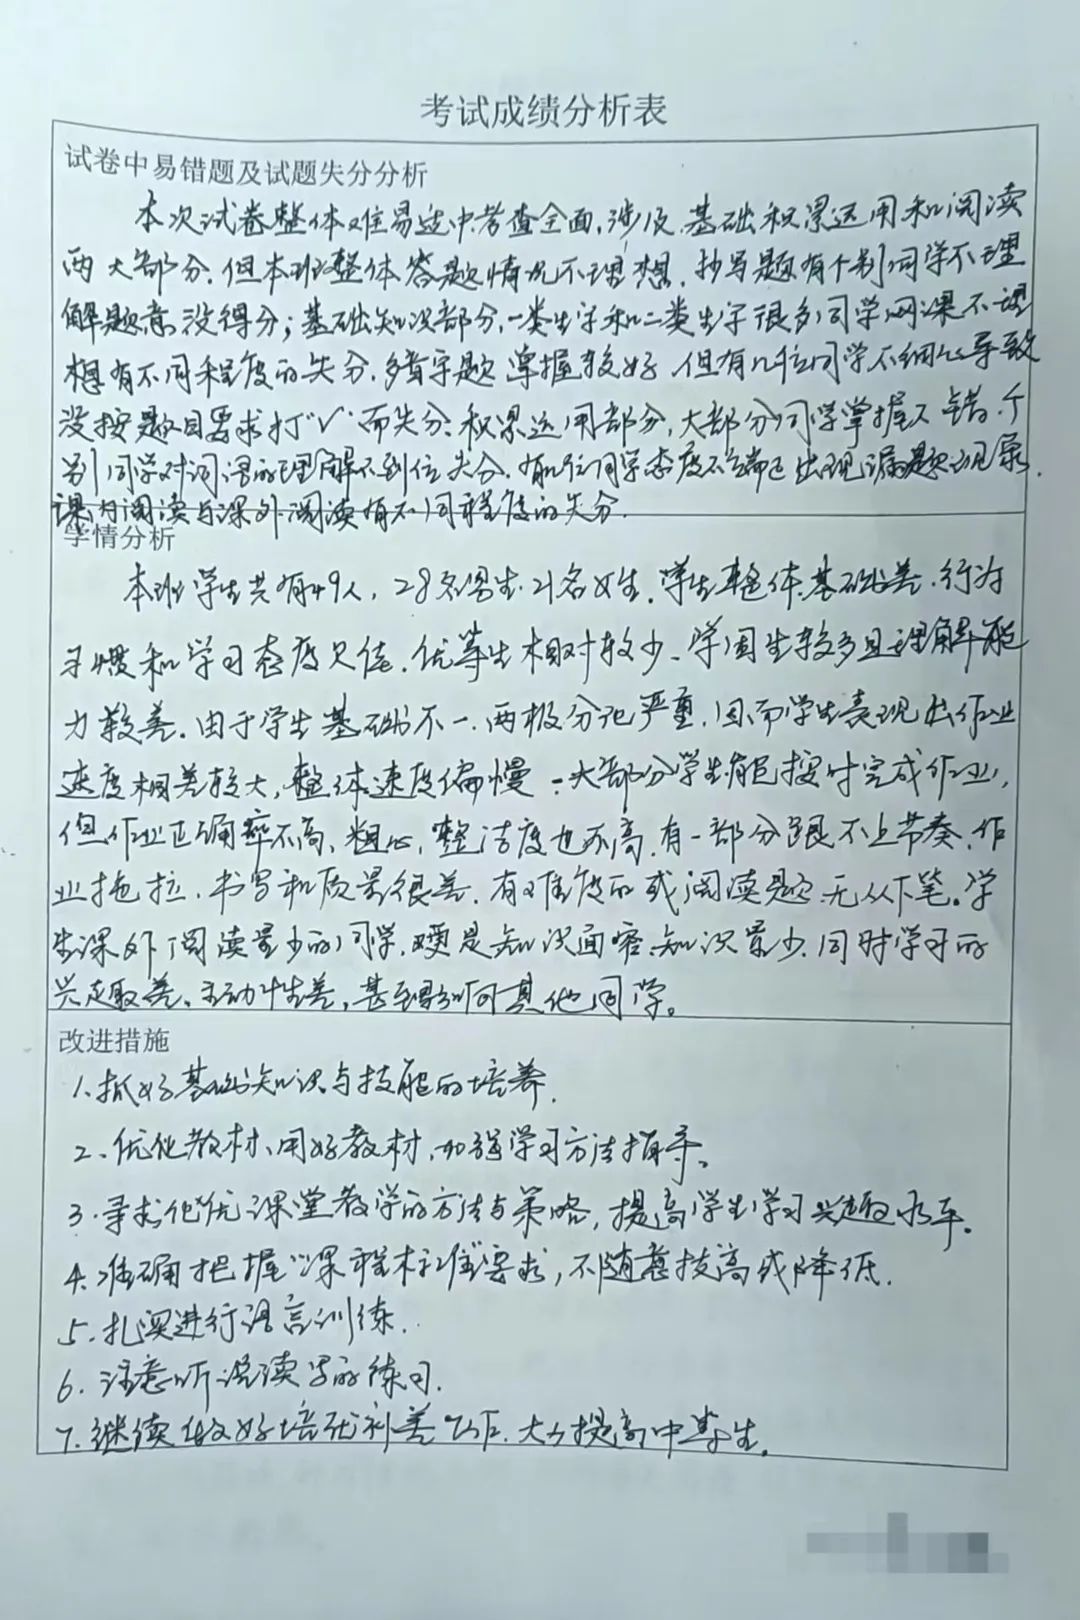 考试成绩分析表
试卷中易错题及试题失分分析
本次试卷整体难易适中,考查全面,涉及基础积累运用和阅读
两大部分.但本班整体答题情况不理想.抄写题有个别同学不理
解题意没得分;基础知识部分,一类生字和二类生字很多同学网课不理
想有不同程度的失分.多音字题掌握较好.但有几位同学不细心导致
没按题目要求打"√"而失分.积累运用部分,大部分同学掌握不错.个
别同学对词语的理解不到位失分.有几位同学态度不端正出现漏题现象.
课内阅读与课外阅读有不同程度的失分.
学情分析
本班学生共有49人,28名男生.21名女生.学生整体基础差.行为
习惯和学习态度欠佳.优等生相对较少、学困生较多且理解能
力较差.由于学生基础不一.两极分化严重.因而学生表现出作业
速度相差较大,整体速度偏慢.一大部分学生能按时完成作业,
但作业正确率不高,粗心,整洁度也不高.有一部分跟不上节奏.作
业拖拉.书写和质量很差.有难度的或阅读题无从下笔。学
生课外阅读量少的同学,更是知识面窄.知识量少.同时学习的
兴趣差、主动性差,甚至影响其他同学。
改进措施
1.抓好基础知识与技能的培养.
2、优化教材、用好教材,加强学习方法指导。
3.寻求优化课堂教学的方法与策略,提高学生学习兴趣水平。
4.准确把握"课程标准"要求,不随意拔高或降低.
5.扎实进行语言训练.
6.注意听说读写的练习.
7.继续做好培优补差工作.大力提高中等生.